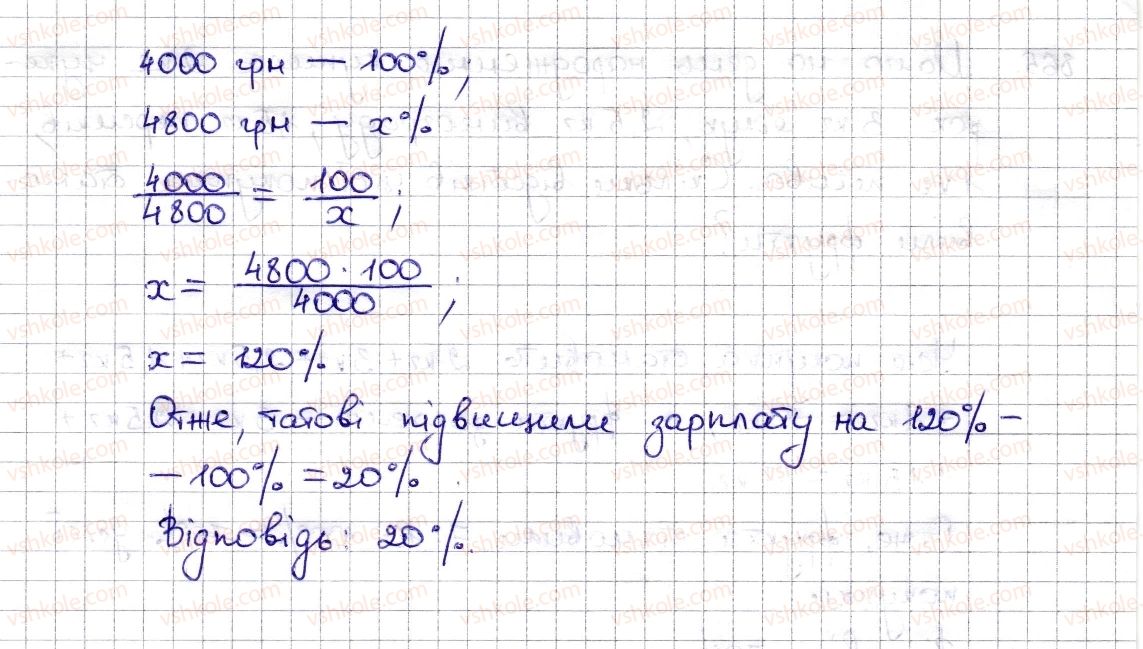 4000 грн — 100%,
4800 грн — x%
4000/4800 = 100/x ;
x = 4800 · 100/4000 ;
x = 120%.
Отже, татові підвищили зарплату на 120% –
– 100% = 20%.
Відповідь: 20%.